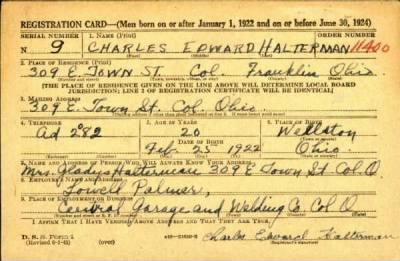 REGISTRATION CARD—(Men born on or after January 1, 1922 and on or before June 30, 1924)
SERIAL NUMBER 1. NAME (Print) ORDER NUMBER
N 9 CHARLES EDWARD HALTERMAN 11400
2. PLACE OF RESIDENCE (Print)
309 E. TOWN ST. Col. Franklin Ohio
[THE PLACE OF RESIDENCE GIVEN ON THE LINE ABOVE WILL DETERMINE LOCAL BOARD
JURISDICTION; LINE 2 OF REGISTRATION CERTIFICATE WILL BE IDENTICAL]
3. MAILING ADDRESS
309 E. Town St. Col. Ohio
4. TELEPHONE 5. AGE IN YEARS 6. PLACE OF BIRTH
Ad 282 20 Wellston
DATE OF BIRTH
Feb 25 1922 Ohio
7. NAME AND ADDRESS OF PERSON WHO WILL ALWAYS KNOW YOUR ADDRESS
Mrs. Gladys Halterman 309 E Town St. Col. O
8. EMPLOYER'S NAME AND ADDRESS
Lowell Palmer,
9. PLACE OF EMPLOYMENT OR BUSINESS
Central Garage and Welding Co. Col O
I AFFIRM THAT I HAVE VERIFIED ABOVE ANSWERS AND THAT THEY ARE TRUE.
D. S. S. Form 1
(over) Charles Edward Halterman